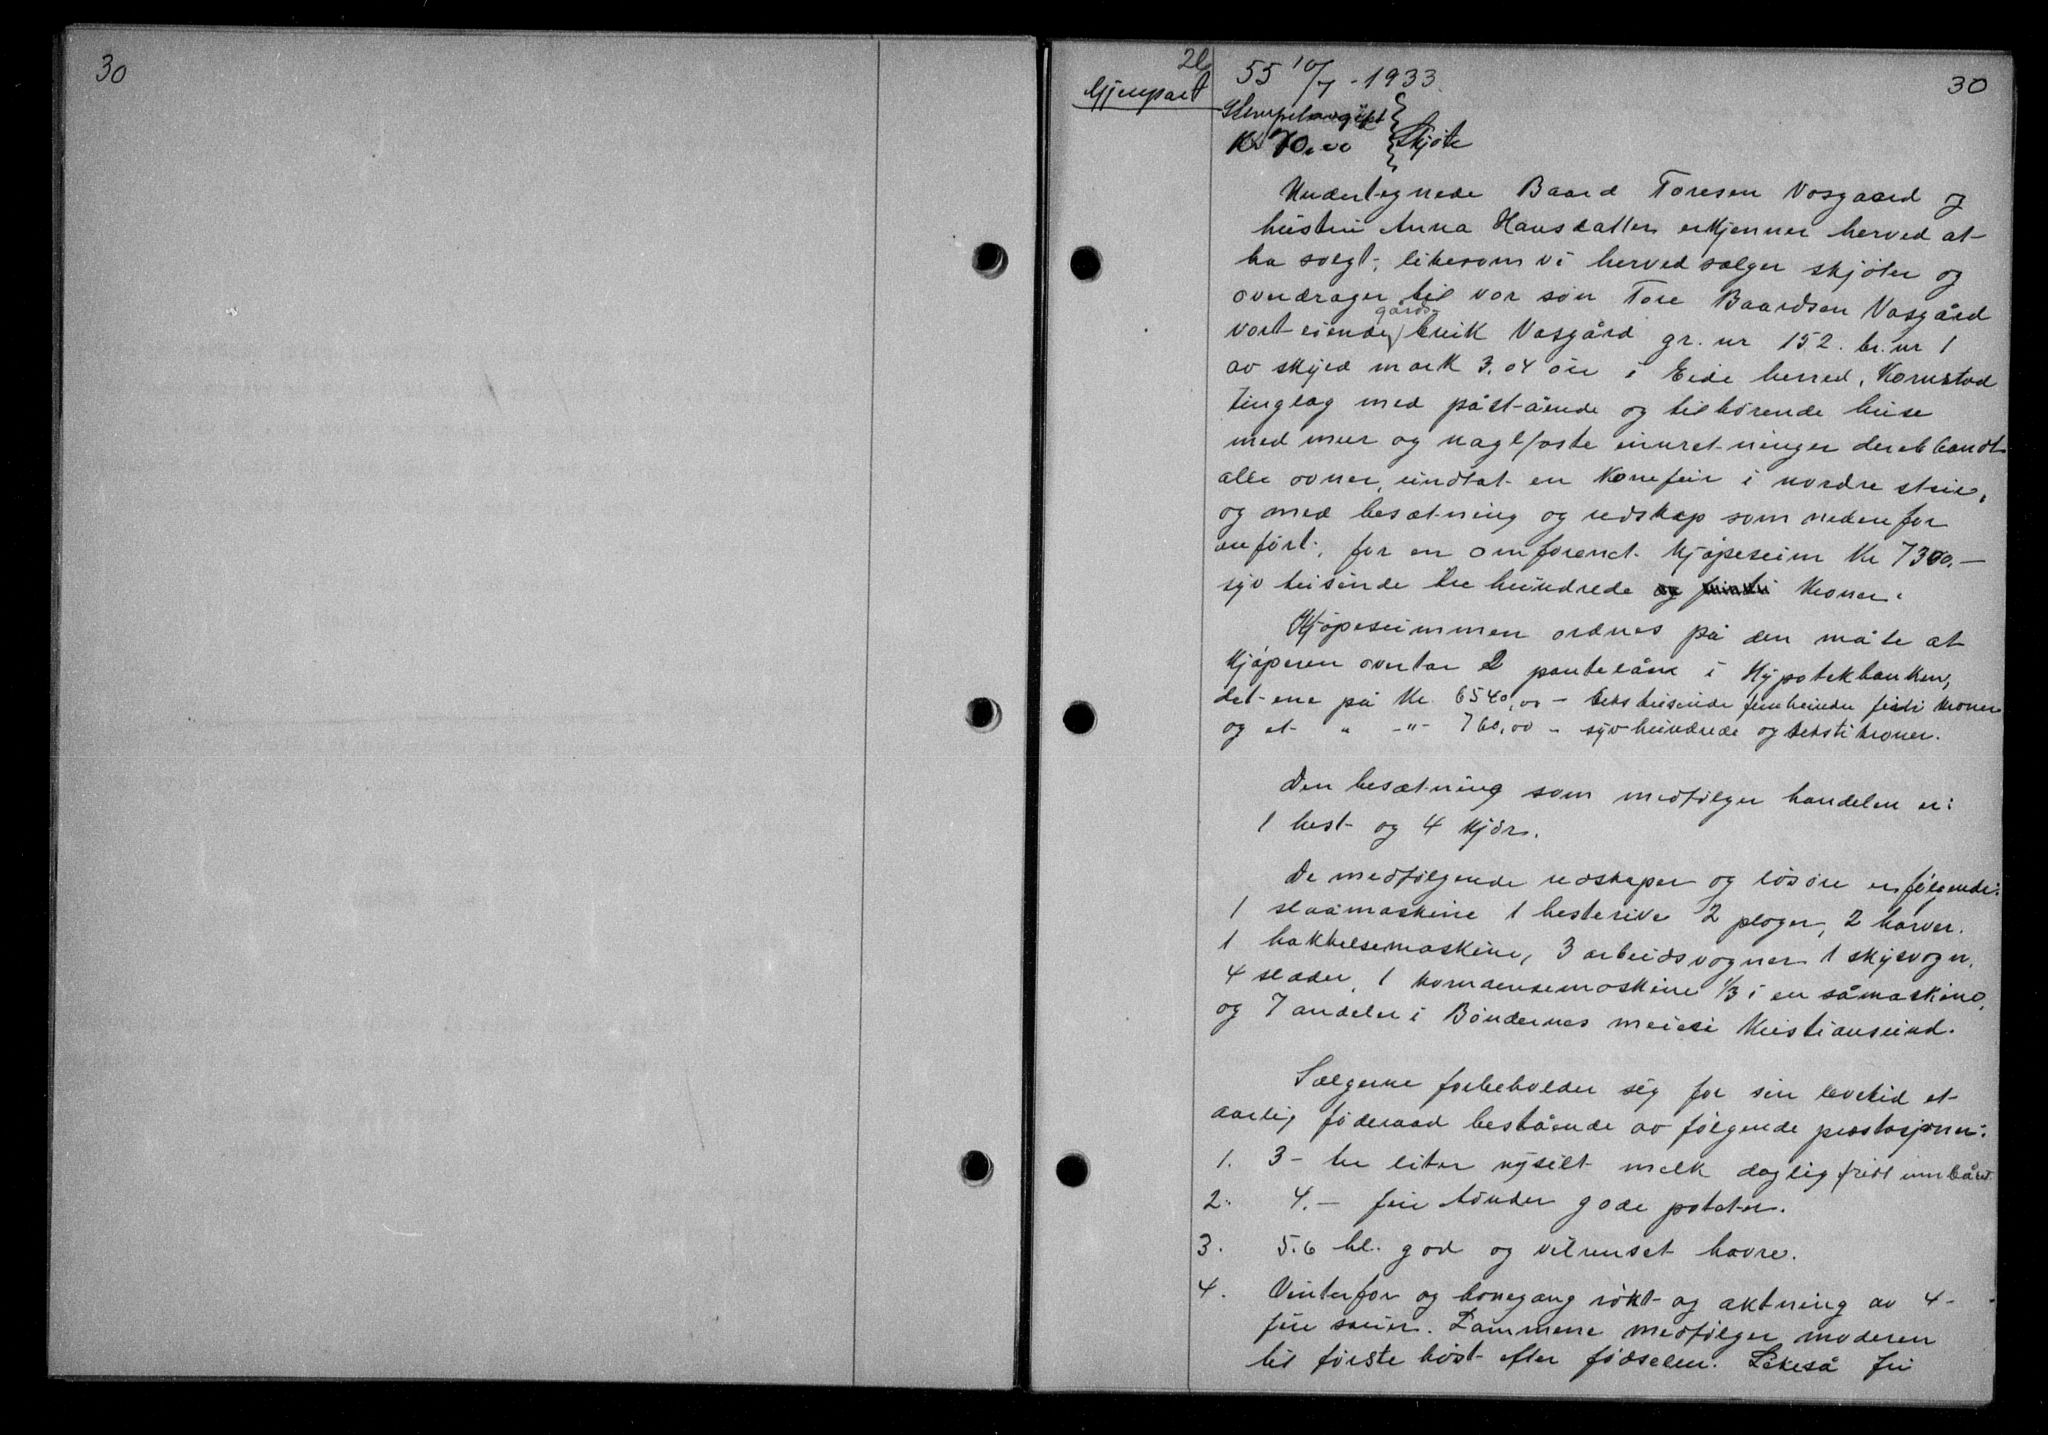 30
2b
Gjenpart
55 10/7 - 1933.
30
Stempelavgift
Kr 70.00 Skjøte
Undertegnede Baard Toresen Vosgaard og
hustru Anna Hansdatter erkjenner herved at
ha solgt, likesom vi herved sælger skjøter og
overdrager til vor søn Tore Baardsen Vasgård
vort eiende gårds-bruk Vasgård gr. nr 152. br. nr 1
av skyld mark 3.04 øre i Eide herred, Kornstad
tinglag med påstående og tilhørende huse
med mur og naglfaste innretninger deriblandt
alle ovner, undtat en Konefeir i nordre stue,
og med besætning og redskap som nedenfor
anført, for en omforenet kjøpesum Kr 7300.—
syv tusinde tre hundrede og femti Kroner.
Kjøpesummen ordnes på den måte at
kjøperen overtar 2 pantelån i Hypotekbanken,
det ene på Kr. 6540,00 - seks tusinde femhundre firti kroner
og et " -"- 760,00 - syvhundrede og seksti kroner.
Den besætning som medfølger handelen er:
1 hest og 4 kjør.
De medfølgende redskaper og løsøre er følgende:
1 slaamaskine 1 hesterive 2 ploger, 2 harver.
1 hakkelsemaskine, 3 arbeidsvogner 1 skysvogn,
4 slæder, 1 kornrensemaskine 1/3 i en såmaskine,
og 7 andeler i Bøndernes meieri Kristiansund.
Sælgerne forbeholder sig for sin levetid et
aarlig føderaad bestående av følgende præstasjoner:
1. 3 - tre liter nysilt melk daglig fridt innbåret
2. 4. — fire tønder gode poteter.
3. 5.6 hl. god og velrenset havre.
4. Vinterfor og havnegang røkt og aktning av 4-
fire sauer. Lammene medfølger moderen
til første høst efter fødselen. Likeså fri